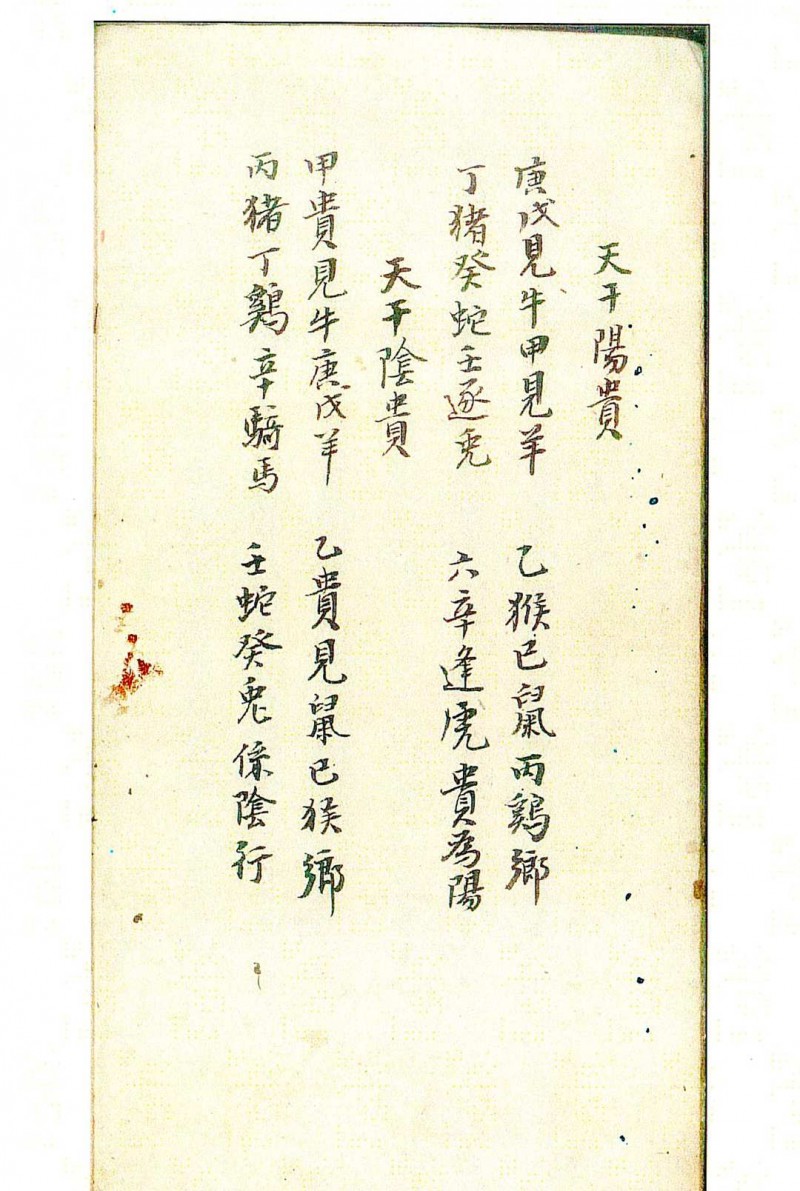 天干陽貴
庚戊見牛甲見羊 乙猴已鼠丙鷄鄉
丁猪癸蛇壬逐兎 六辛逢虎貴為陽
天干陰貴
甲貴見牛庚戊羊 乙貴見鼠已猴鄉
丙猪丁鷄辛騎馬 壬蛇癸兎係陰行